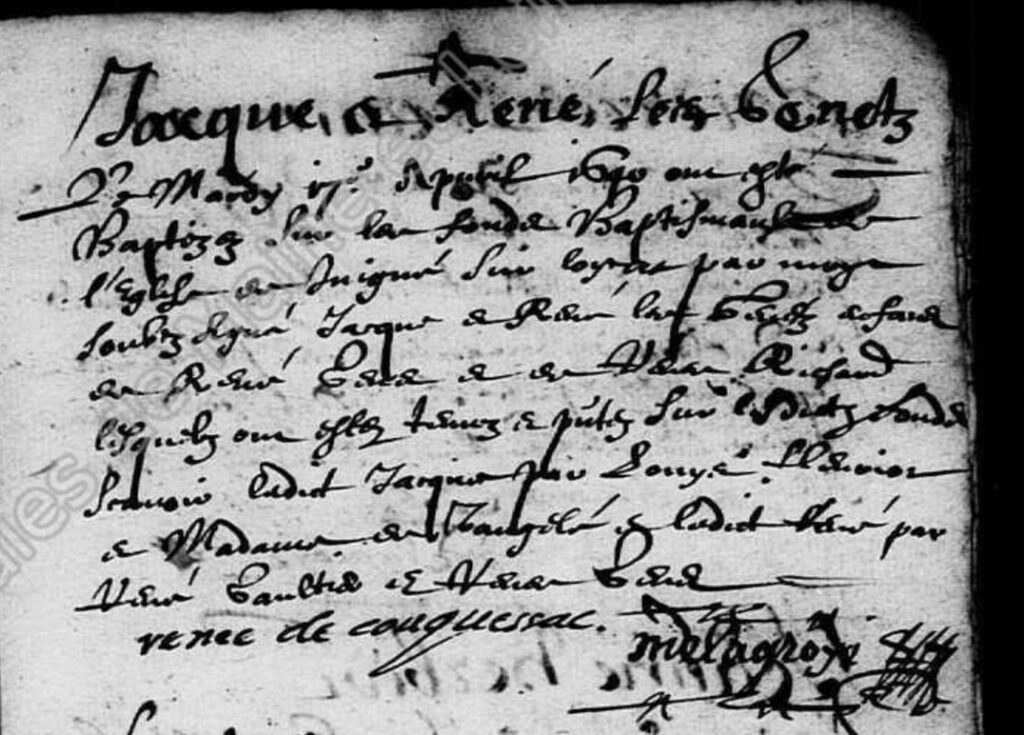 Jacque, et René, les Genetz
Le Mardy 17e Apvril 1640 ont esté
Baptizez sur les fondz Baptismaulx de
l'Eglise de Juigné sur loyre par moy
soubzsigné Jacque et René les Genetz enfans
de René Gene et de Renee Richard
lesquelz ont estez tenuz et pntez sur lesdictz fondz
scavoir ledict Jacque par Louys
et Madame de et ledict René par
René Gaultier et Renee Gene
renee de couquessac.